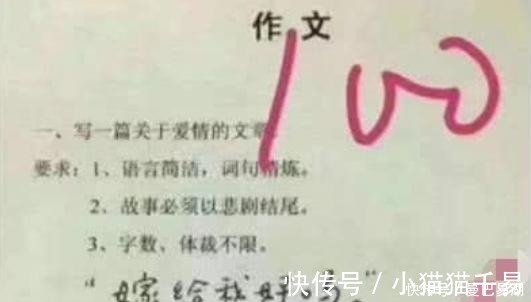 作文
100
一、写一篇关于爱情的文章。
要求：1、语言简洁，词句精炼。
2、故事必须以悲剧结尾。
3、字数、体裁不限。
“嫁给我好吗？”
快传号 / 小猫猫千易
快传号